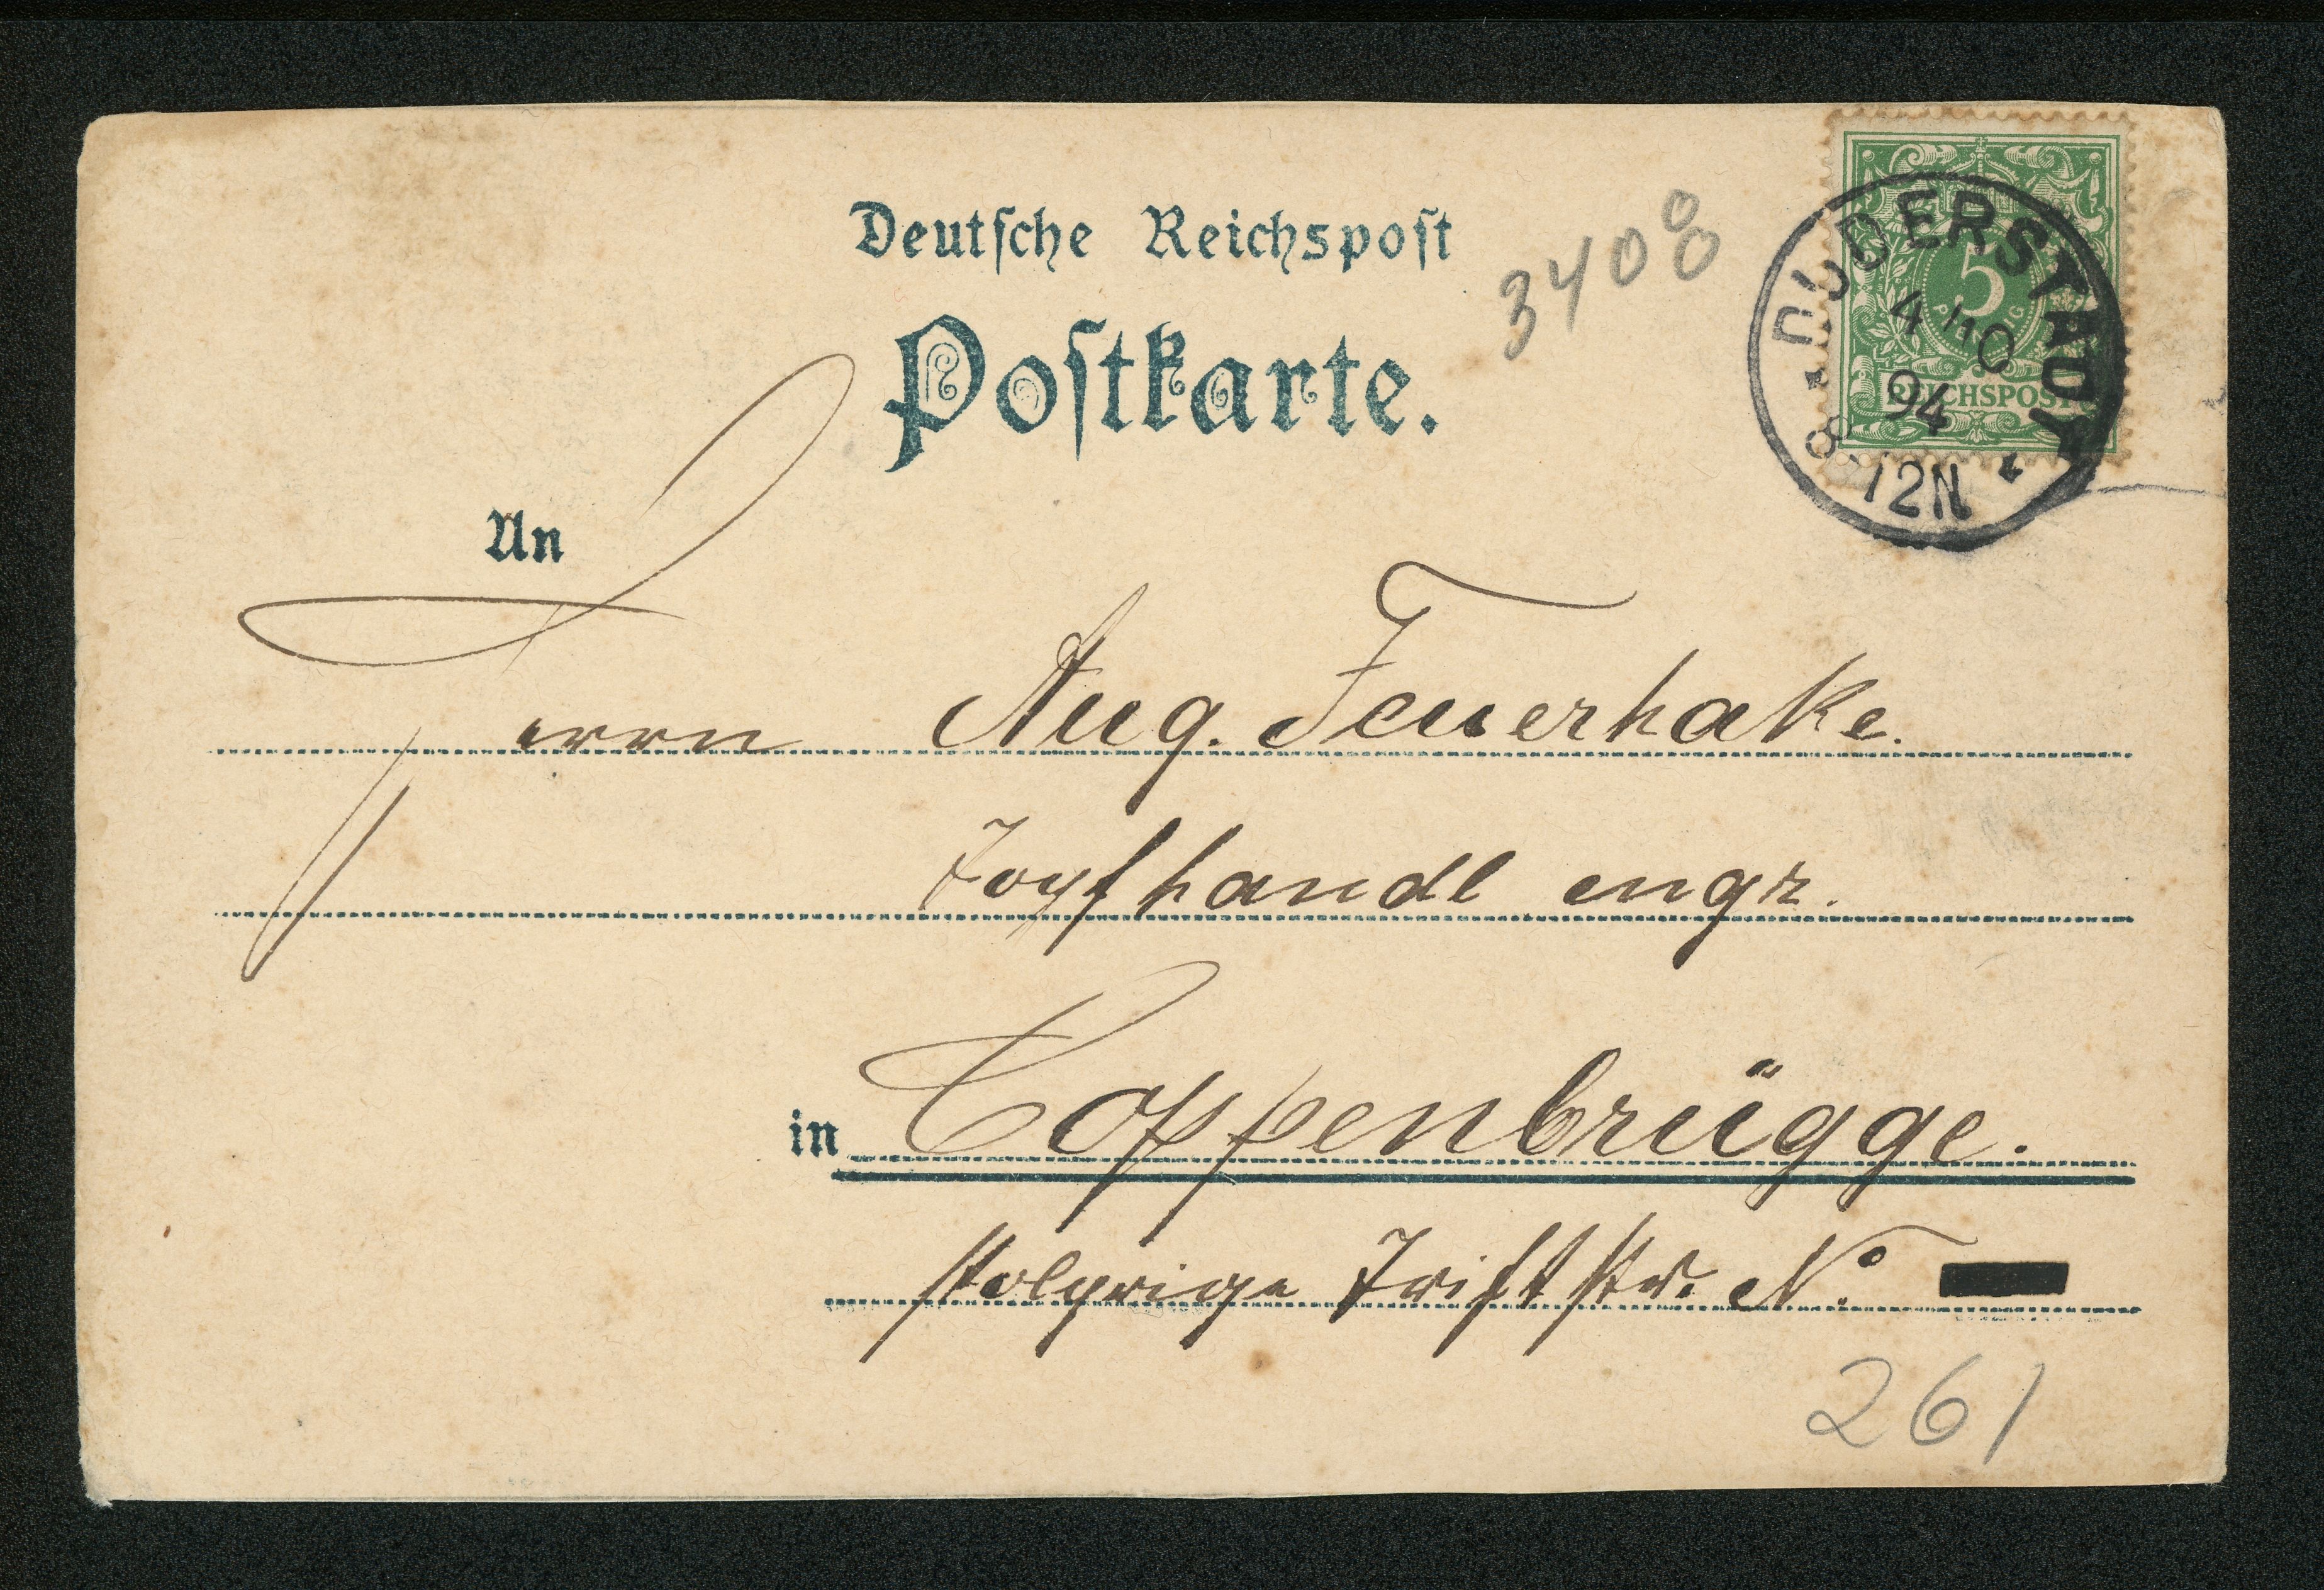 Deutsche Reichspost
3408
Postkarte.
DUDERSTADT
4/10
94
8-12N
5
PFENNIG
REICHSPOST
An
Herrn Aug. Feuerhake.
Topfhandl engr.
in Coppenbrügge.
Triftstr. No.
261